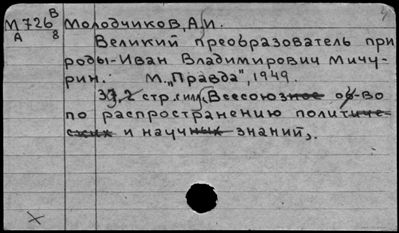 М726 В Молодчиков, А.И.
А 8 Великий преобразователь при
роды-Иван Владимирович Мичу-
рин. М. „Правда", 1949.
стр. с илл. (Всесоюзное об-во
по распространению политиче-
ских и научных знаний).